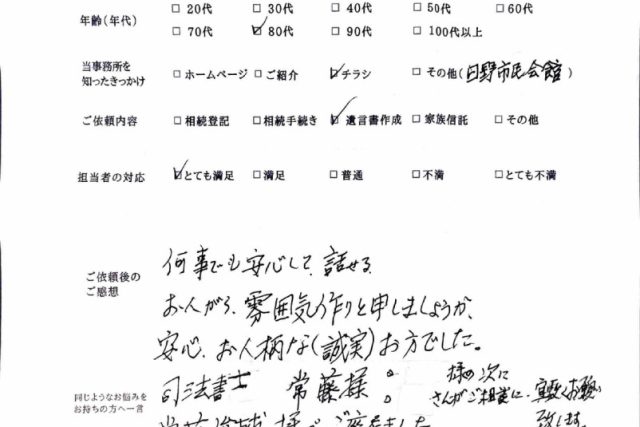 年齢(年代)
□20代 □30代 □40代 □50代 □60代
□70代 ☑80代 □90代 □100代以上
当事務所を
知ったきっかけ
□ホームページ □ご紹介 ☑チラシ □その他(日野市民会館)
ご依頼内容 □相続登記 □相続手続き ☑遺言書作成 □家族信託 □その他
担当者の対応 ☑とても満足 □満足 □普通 □不満 □とても不満
ご依頼後の
ご感想
何事でも安心して、話せる
お人がら、雰囲気作りと申しましょうか、
安心、お人柄な(誠実)お方でした。
同じようなお悩みを
お持ちの方へ一言
司法書士 常藤様。
様の次に
さんがご相談に、
致します